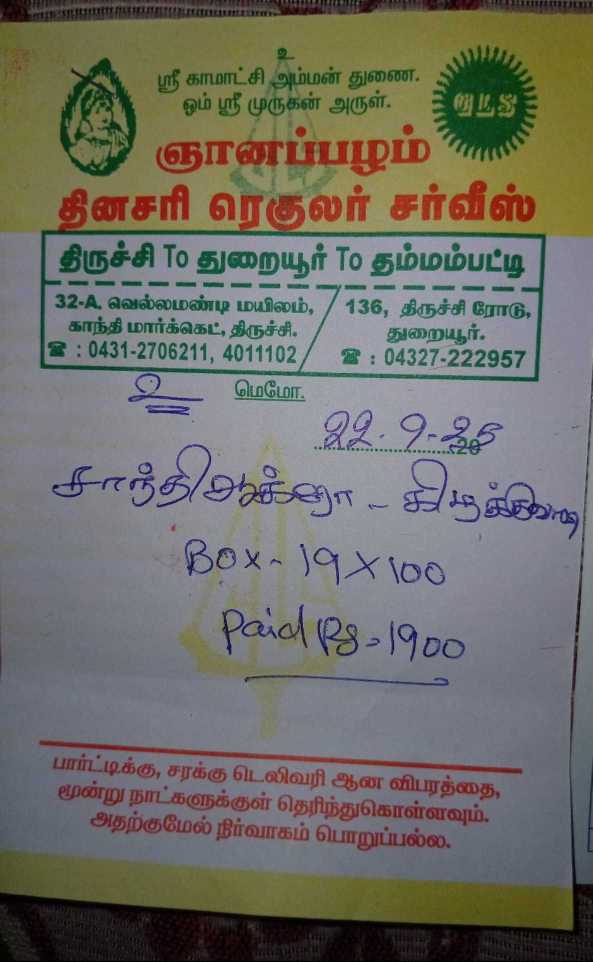 உ
ஸ்ரீ காமாட்சி அம்மன் துணை.
ஓம் ஸ்ரீ முருகன் அருள்.
ஞானப்பழம்
தினசரி ரெகுலர் சர்வீஸ்
திருச்சி To துறையூர் To தம்மம்பட்டி
32-A, வெல்லமண்டி மயிலம்,
காந்தி மார்க்கெட், திருச்சி.
☎ : 0431-2706211, 4011102
136, திருச்சி ரோடு,
துறையூர்.
☎ : 04327-222957
உ மெமோ.
22.9-25
20
சாந்தி
Box - 19 X 100
Paid Rs = 1900
பார்ட்டிக்கு, சரக்கு டெலிவரி ஆன விபரத்தை,
மூன்று நாட்களுக்குள் தெரிந்துகொள்ளவும்.
அதற்குமேல் நிர்வாகம் பொறுப்பல்ல.